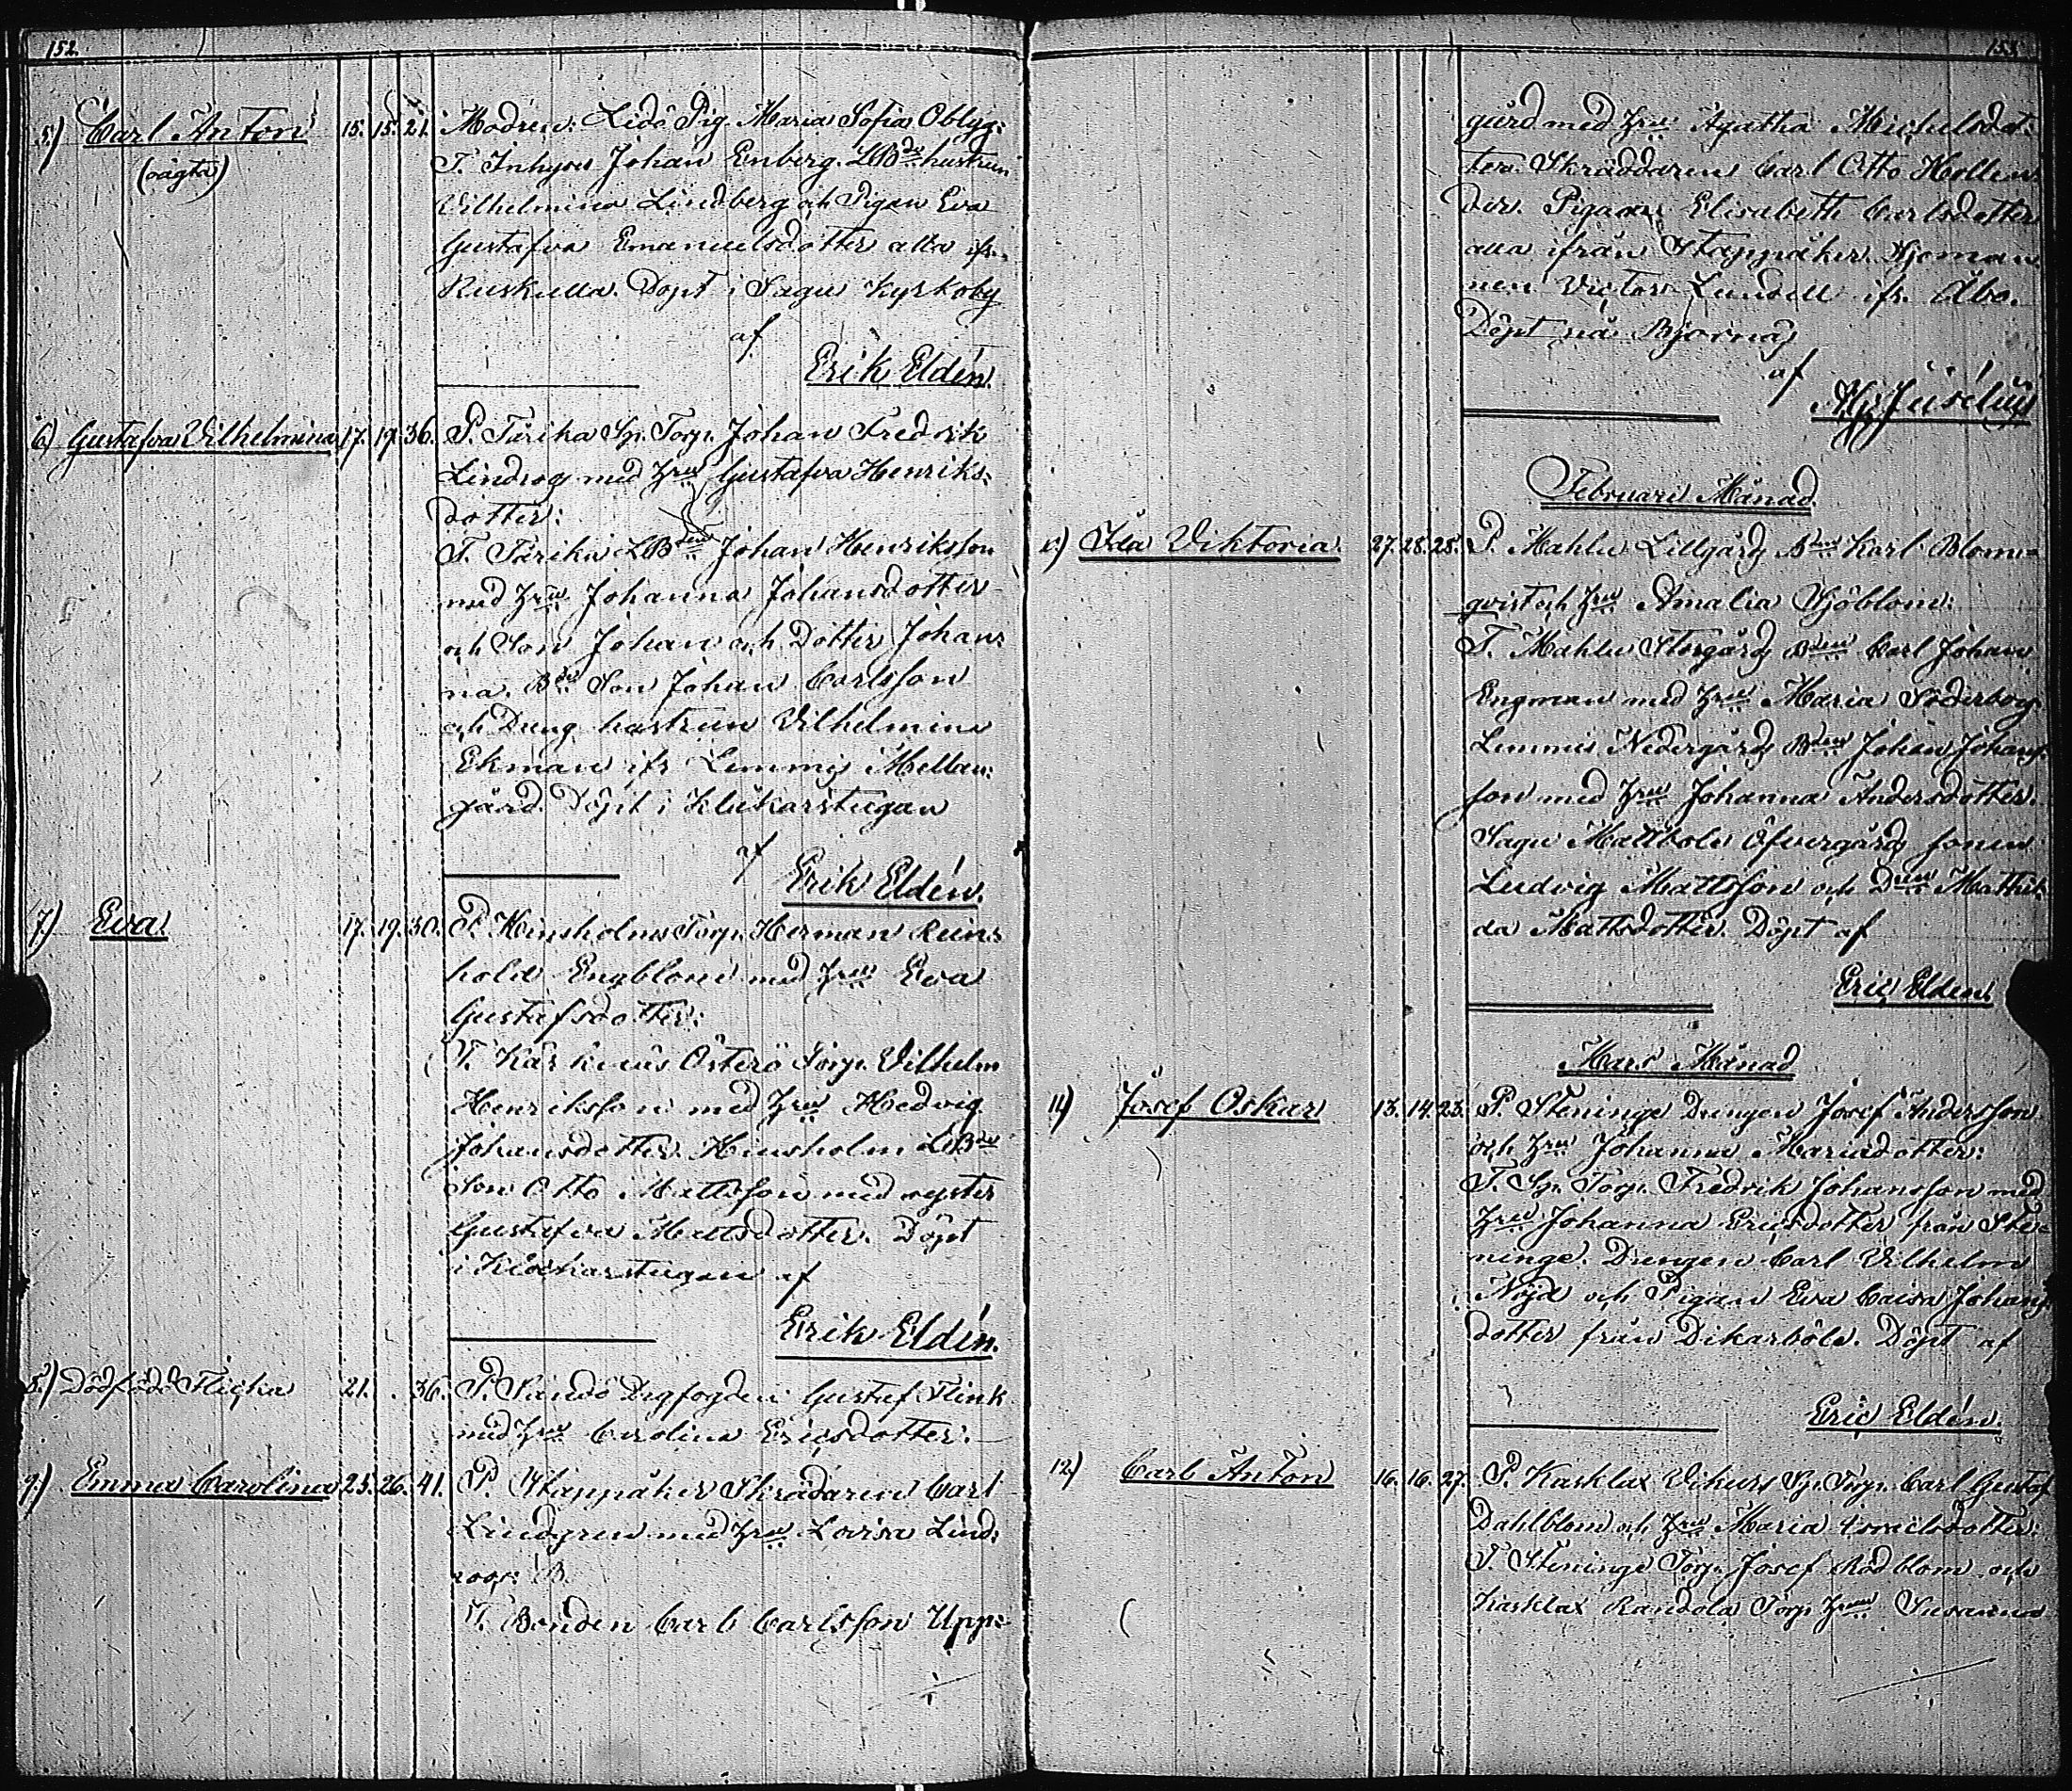 152.
5.) Carl Anton 15. 15. 21. Modren: Lidö Pig. Maria Sofia Oblyg:
(oägta) T. Inhyses Johan Enberg. LBde hustrun
Vilhelmina Lindberg och Pigan Eva
Gustafva Emanuelsdotter alla ifr.
Ruskulla. Döpt i Sagu Kyrkoby
af
Erik Eldén
6.) Gustafva Vilhelmina 17. 19. 36. P. Tärika Sp. Torp. Johan Fredrik
Lindrog med Hru Gustafva Henriks:
dotter:
T. Tärika LBden Johan Henriksson
med Hru Johanna Johansdotter
och Son Johan och Dotter Johan:
na. Bde Son Johan Carlsson
och Dräng hustrun Vilhelmina
Ekman ifr Lemmis Mellan:
gård. Döpt i Klåkarstugan
af
Erik Eldén.
7.) Eva 17. 19. 30. P. Hinsholm Torp. Herman Rein:
hold Engblom med Hru Eva
Gustafsdotter:
T. Kärknäs Österö Torp. Vilhelm
Henriksson med Hru Hedvig
Johansdotter. Hinsholm LBde
Son Otto Mattsson med syster
Gustafva Mattsdotter. Döpt
i Klåckarstugan af
Erik Eldén.
8.) Dödfödd Flicka 21. . 36. P. Sandö Degfogden Gustaf Flink
med Hru Carolina Ericsdotter.
9.) Emma Carolina 25. 26. 41. P. Stappåker Skrädaren Carl
Lindgren med Hru Lovisa Lind:
roos: B.
T. Bonden Carl Carlsson Upp:
153
gård med Hru Agatha Michelsdot:
ter. Skräddaren Carl Otto Hollen
der. Pigan Elisabeth Carlsdotter
alla ifrån Stappåker. Sjöman
nen Victor Lundell ifr. Åbo.
Döpt på Bjornä
af
Hj. Jusélius
Februari Månad
Ida Viktoria. 27. 28. 28. P. Mahlu Lillgård Bden Karl Blom=
qvist och Hru Amalia Sjöblom:
T. Mahlu Storgård Bden Carl Johan
Engman med Hru Maria Söderborg.
Lemmis Nedergård Bden Johan Johans
son med Hru Johanna Andersdotter.
Sagu Mattbole Öfvergård sonen
Ludvig Mattsson och Dren Mathil:
da Mattsdotter. Döpt af
Eric Eldén.
Mars Månad
11) Josef Oskar 13. 14. 23. P. Steninge Drengen Josef Andersson
och Hru Johanna Mariadotter:
T. Sp. Torp. Fredrik Johansson med
Hru Johanna Ericsdotter från Ste=
ninge. Drengen Carl Vilhelm
Nöjd och Pigan Eva Caisa Johans
dotter från Dikarböle. Döpt af
Eric Eldén.
12.) Carl Anton 16. 16. 27. P. Karklax Vikurs Sp. Torp. Carl Gustaf
Dahlblom och Hru Maria Israelsdotter:
T. Steninge Torp. Josef Rodblom och
Karklax Randola Torp Hrun Susanna